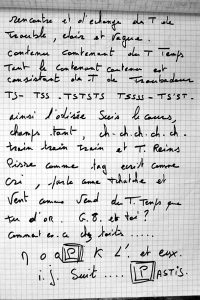 rencontre et d'échange du T de
Trouble, claire et Vague.
contenu contenant du T Temps
Tant le contenant contenu est
consistant du T de Troubadour
TS- TSS. TSTSTS TSSSS- TS'ST.
ainsi l'odisée suis le cours,
champs tant, ch-ch-ch-ch-ch.
train train Train et T. Reins
Pisse comme tag écrit comme
Cri, parle comme Tchatche et
Vent comme Vend du T. Temps que
tu d'OR. G.B. et toi?
Comment ça chez toits.....
n o a P K L'. et eux.
i.j. Suit.... P ASTIS.